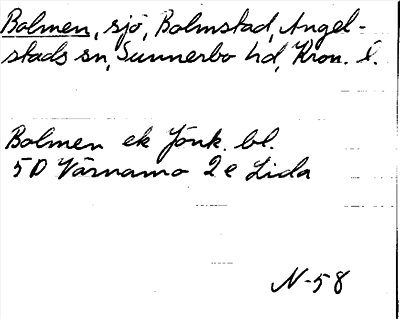 Bolmen, sjö, Bolmstad, Angel-
stads sn, Sunnerbo hd, Kron. l.
Bolmen ek Jönk. bl.
5D Värnamo 2e Lida
N-58